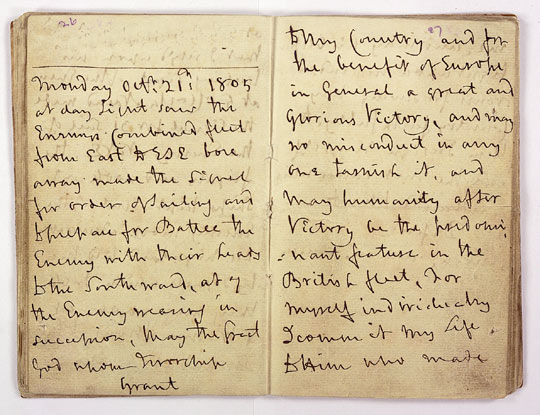 26
Monday Octr. 21st 1805
at day Light saw the
Enemys Combined fleet
from East to ESE bore
away made the Signal
for order of Sailing and
to prepare for Battle the
Enemy with their heads
to the Southward, at 7
the Enemy wearing in
succession, May the Great
God whom I worship
Grant
27
to my Country and for
the benefit of Europe
in General a great and
Glorious Victory, and may
no misconduct in any
one tarnish it, and
May humanity after
Victory be the predomi
-nant feature in the
British fleet, For
myself individually
I commit my Life
to Him who made